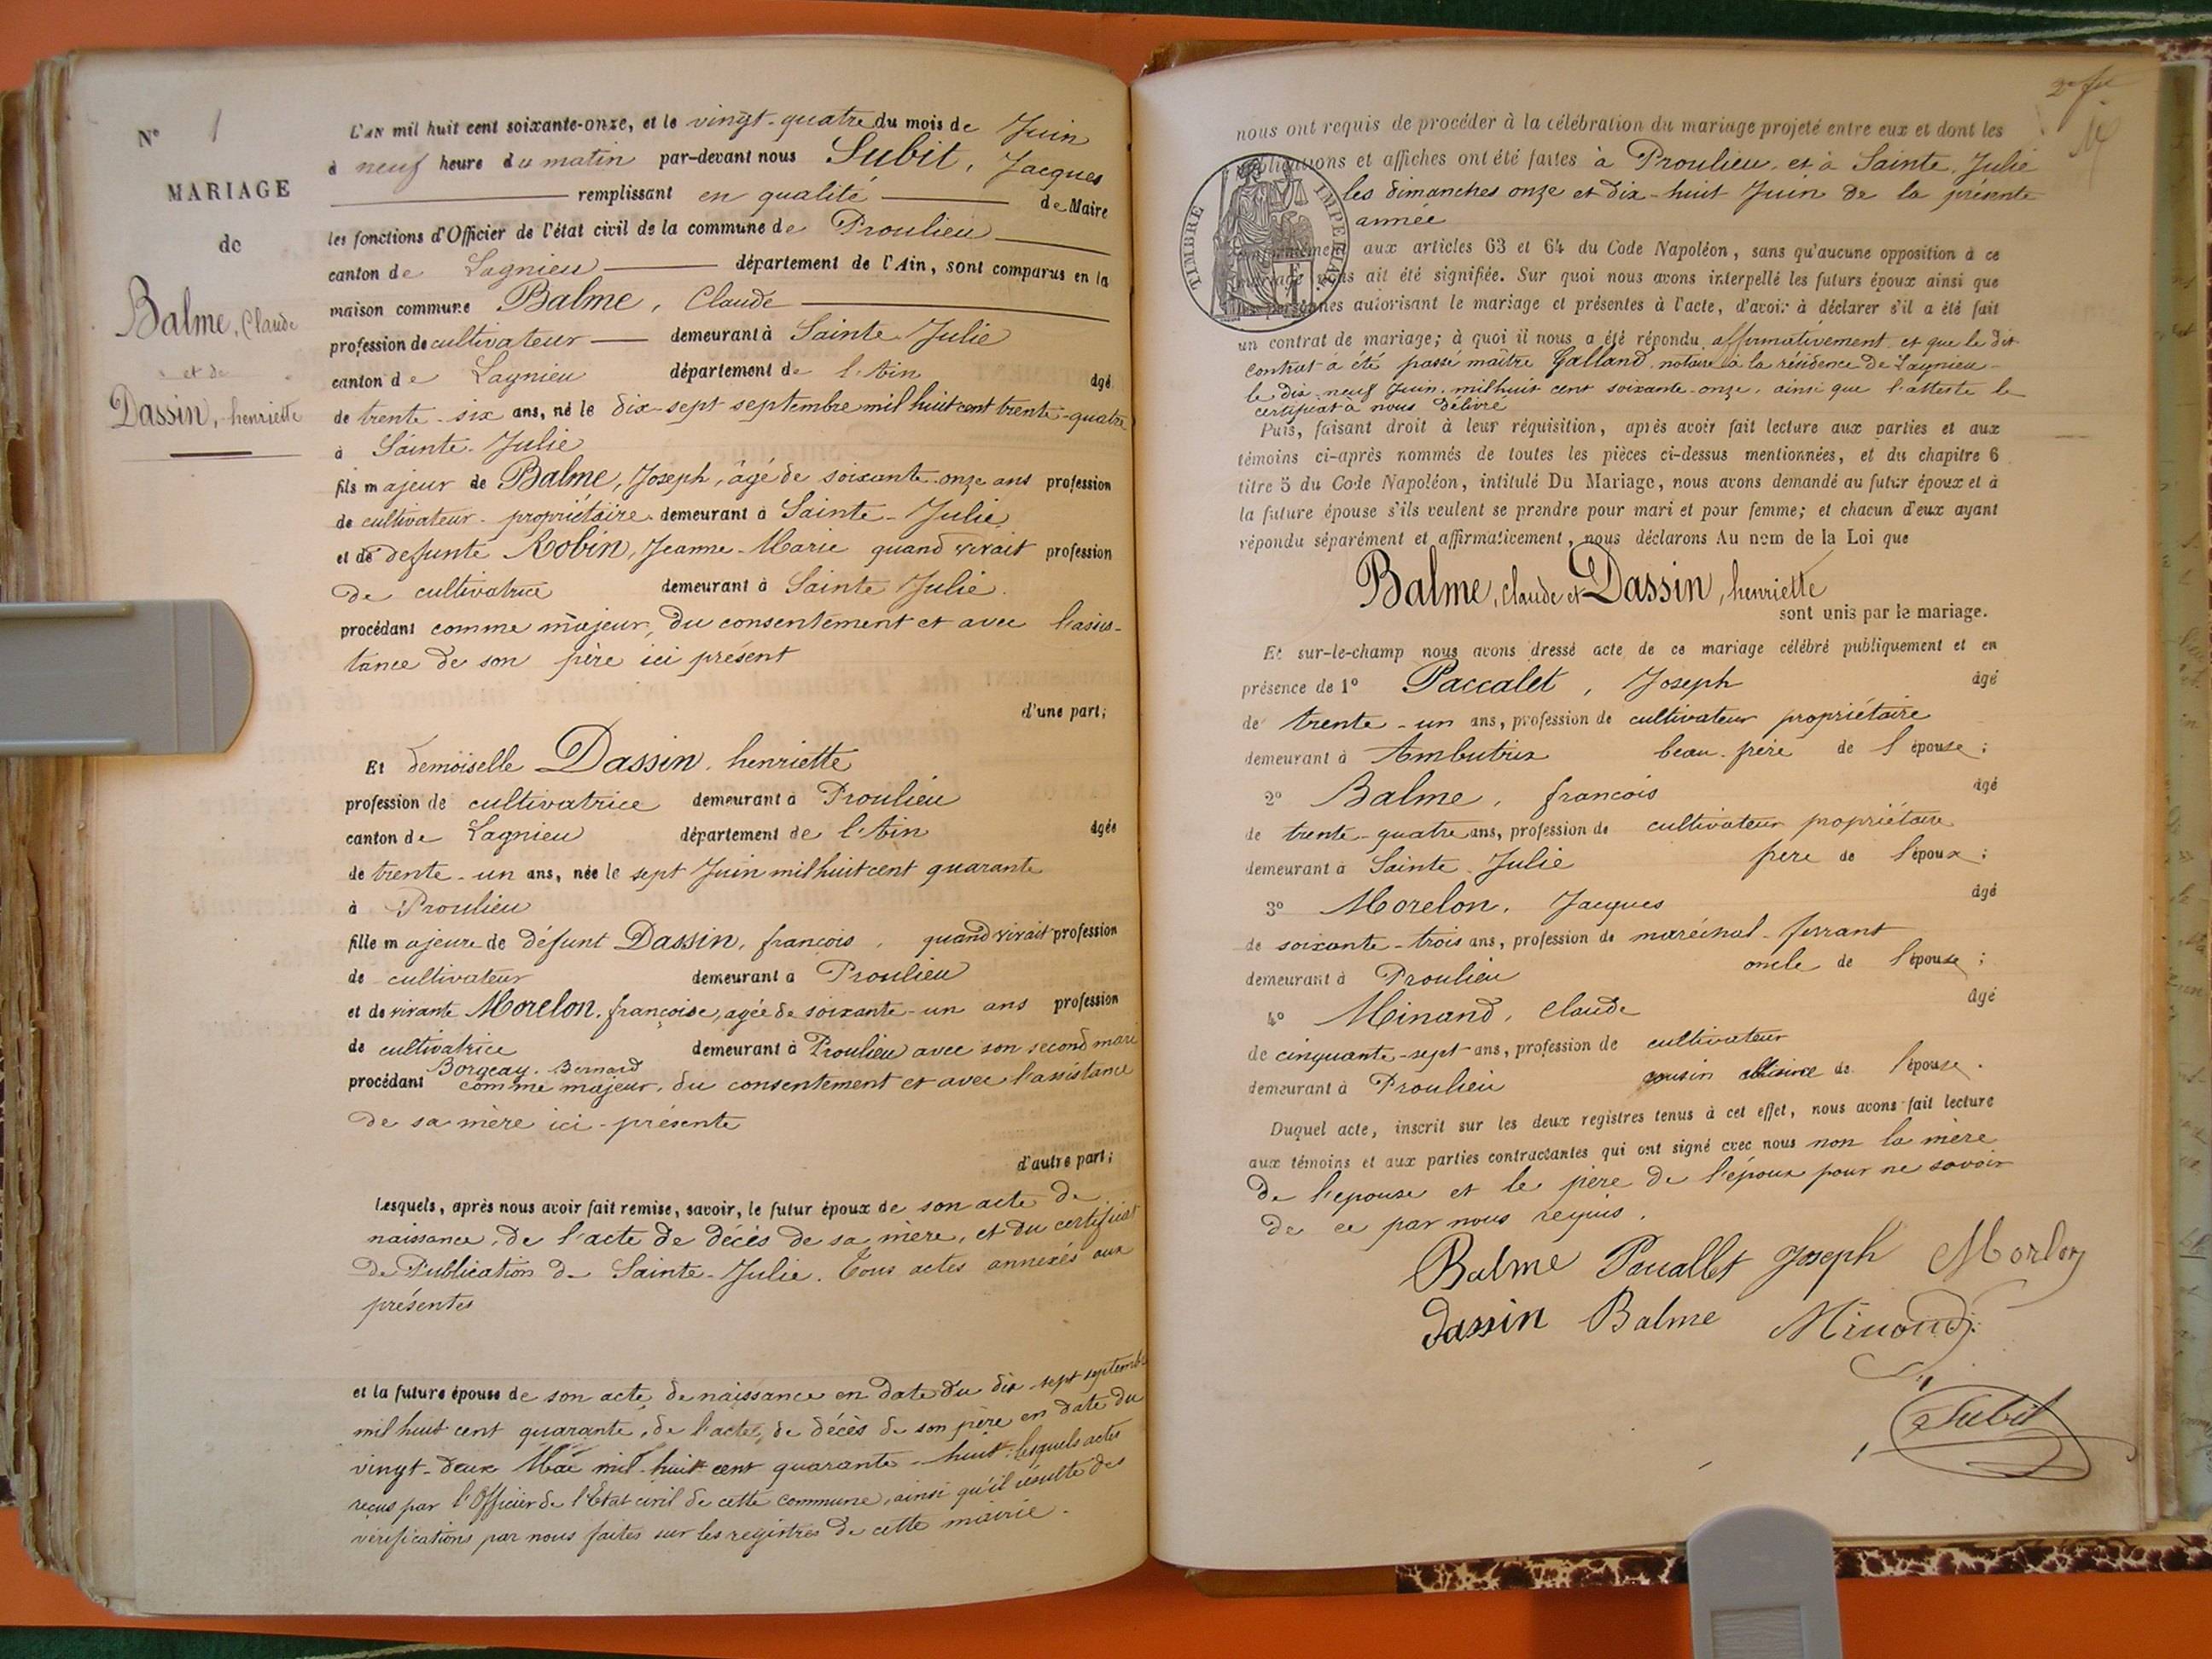 N° 1
MARIAGE
de
Balme, Claude
et de
Dassin, henriette
L'AN mil huit cent soixante-onze, et le vingt-quatre du mois de Juin
à neuf heure du matin par-devant nous Subit, Jacques
remplissant en qualité de Maire
les fonctions d'Officier de l'état civil de la commune de Proulieu
canton de Lagnieu département de l'Ain, sont comparus en la
maison commune Balme, Claude
profession de cultivateur demeurant à Sainte Julie
canton de Lagnieu département de l'Ain âgé
de trente-six ans, né le dix-sept septembre mil huit cent trente-quatre
à Sainte-Julie
fils majeur de Balme, Joseph, âgé de soixante-onze ans profession
de cultivateur-propriétaire demeurant à Sainte-Julie
et de defunte Robin, Jeanne-Marie quand vivait profession
de cultivatrice demeurant à Sainte Julie.
procédant comme majeur, du consentement et avec l'assis-
tance de son père ici présent
d'une part;
Et demoiselle Dassin, henriette
profession de cultivatrice demeurant à Proulieu
canton de Lagnieu département de l'Ain âgée
de trente-un ans, née le sept Juin mil huit cent quarante
à Proulieu
fille majeure de défunt Dassin, françois, quand vivait profession
de cultivateur demeurant à Proulieu
et de vivante Morelon, françoise, agée de soixante-un ans profession
de cultivatrice demeurant à Proulieu avec son second mari
Borgeay, Bernard
procédant comme majeur, du consentement et avec l'assistance
de sa mère ici-présente
d'autre part;
Lesquels, après nous avoir fait remise, savoir, le futur époux de son acte de
naissance, de l'acte de décès de sa mère, et du certificat
de Publication de Sainte-Julie. Tous actes annexés aux
présentes
et la future épouse de son acte de naissance en date du dix sept septembre
mil huit cent quarante, de l'acte de décès de son père en date du
vingt-deux Mai mil-huit cent quarante-huit; lesquels actes
reçus par l'Officier de l'Etat civil de cette commune, ainsi qu'il résulte des
vérifications par nous faites sur les registres de cette mairie.
nous ont requis de procéder à la célébration du mariage projeté entre eux et dont les
publications et affiches ont été faites à Proulieu, et à Sainte Julie
les dimanches onze et dix-huit Juin de la présente
année
TIMBRE IMPERIAL
conformément aux articles 63 et 64 du Code Napoléon, sans qu'aucune opposition à ce
mariage nous ait été signifiée. Sur quoi nous avons interpellé les futurs époux ainsi que
les personnes autorisant le mariage et présentes à l'acte, d'avoir à déclarer s'il a été fait
un contrat de mariage; à quoi il nous a été répondu affirmativement et que le dit
contrat a été passé maître Galland notaire à la résidence de Lagnieu
le dix-neuf Juin mil huit cent soixante-onze, ainsi que l'atteste le
certificat à nous délivré
Puis, faisant droit à leur réquisition, après avoir fait lecture aux parties et aux
témoins ci-après nommés de toutes les pièces ci-dessus mentionnées, et du chapitre 6
titre 5 du Code Napoléon, intitulé Du Mariage, nous avons demandé au futur époux et à
la future épouse s'ils veulent se prendre pour mari et pour femme; et chacun d'eux ayant
répondu séparément et affirmativement, nous déclarons Au nom de la Loi que
Balme, claude et Dassin, henriette
sont unis par le mariage.
Et sur-le-champ nous avons dressé acte de ce mariage célébré publiquement et en
présence de 1° Paccalet, Joseph âgé
de trente-un ans, profession de cultivateur propriétaire
demeurant à Ambutrix beau-frère de l'épouse;
2° Balme, françois âgé
de trente-quatre ans, profession de cultivateur propriétaire
demeurant à Sainte-Julie frère de l'époux;
3° Morelon, Jacques âgé
de soixante-trois ans, profession de maréchal-ferrant
demeurant à Proulieu oncle de l'épouse;
4° Minand, Claude âgé
de cinquante-sept ans, profession de cultivateur
demeurant à Proulieu cousin de l'épouse.
Duquel acte, inscrit sur les deux registres tenus à cet effet, nous avons fait lecture
aux témoins et aux parties contractantes qui ont signé avec nous non la mère
de l'epouse et le père de l'époux pour ne savoir
de ce par nous requis.
Balme Paccallet Joseph Morlon
Dassin Balme Minand
Subit